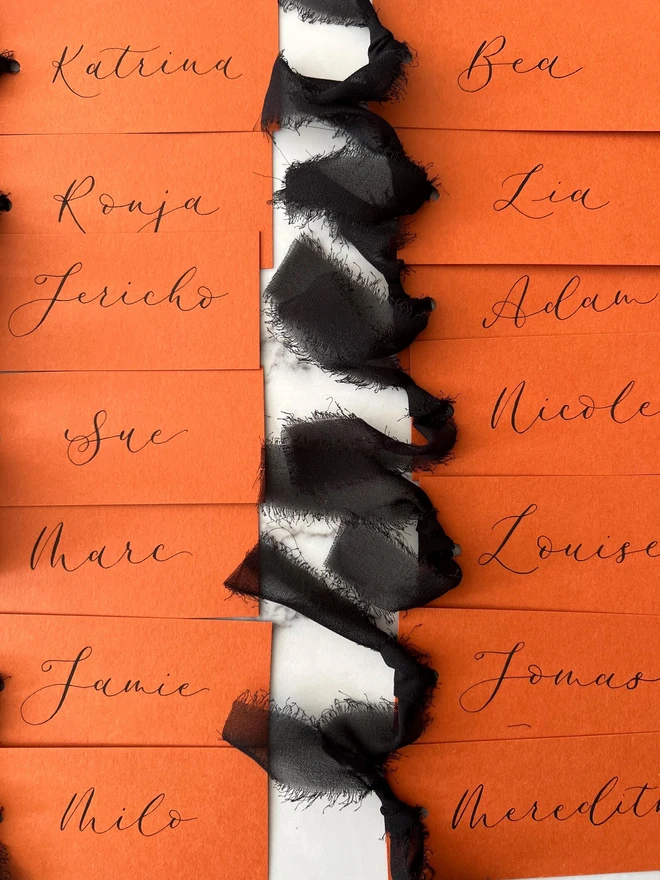 Katrina
Ronja
Jericho
Sue
Marc
Jamie
Milo
Bea
Lia
Adam
Nicole
Louise
Tomas
Meredith